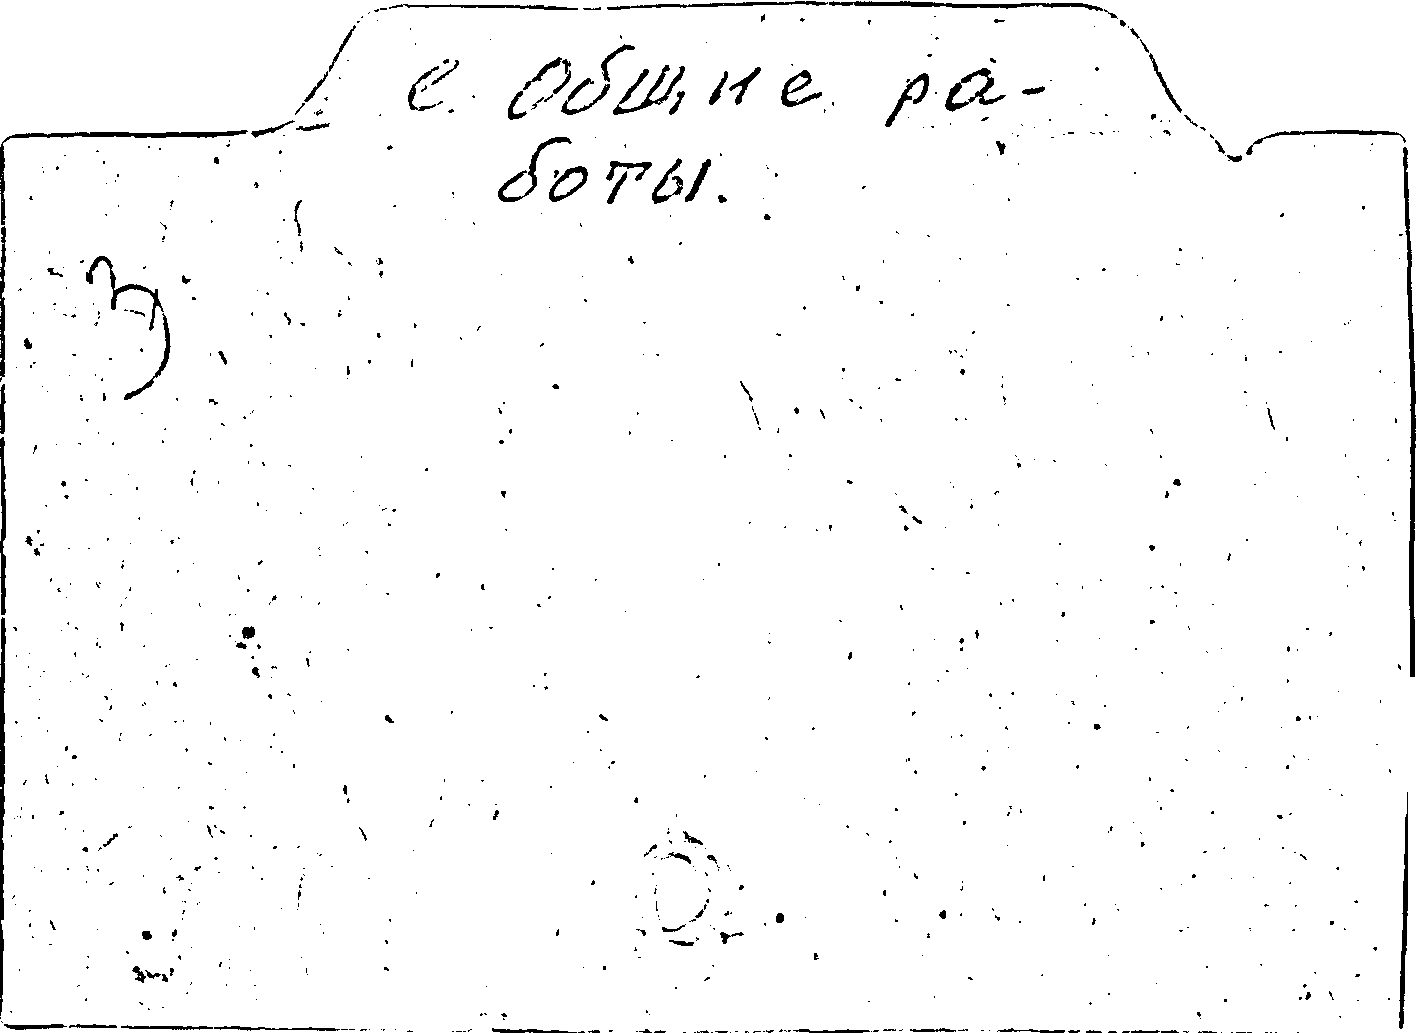 е. Общие ра-
боты.